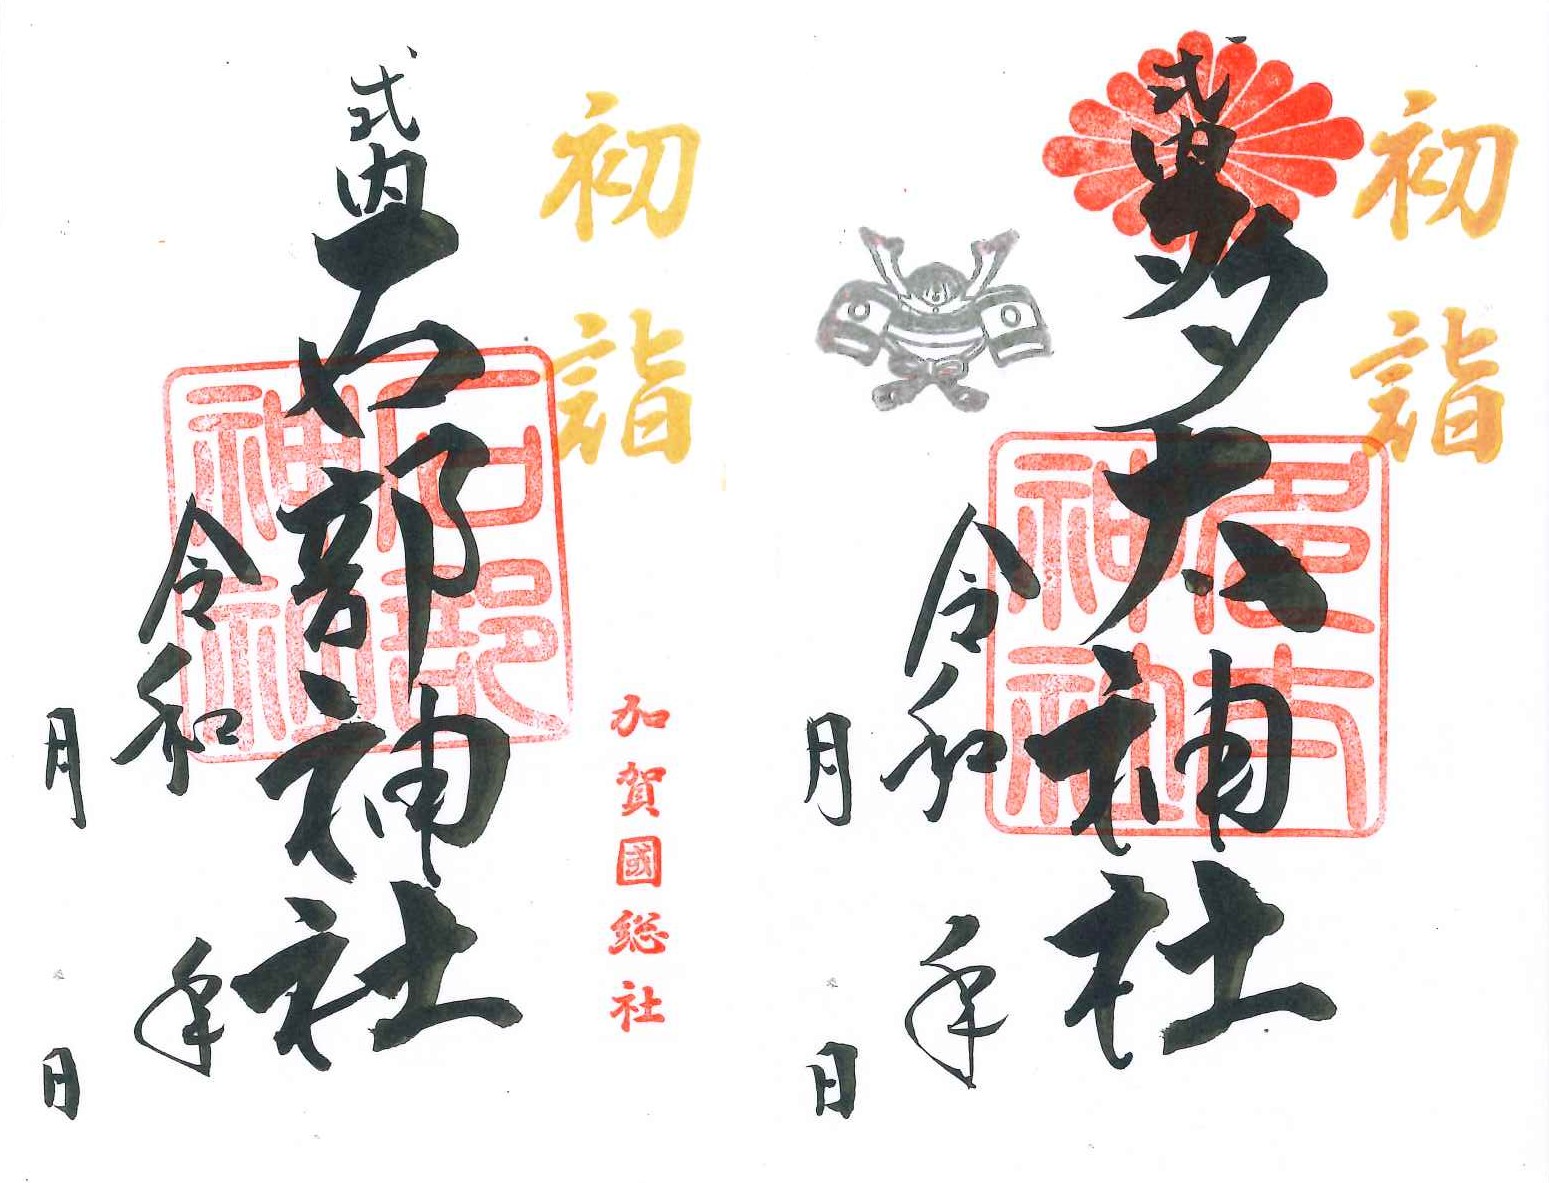 初詣
式内 多太神社
令和 年
月 日
初詣
加賀國総社
式内 石部神社
石部神社
令和 年
月 日